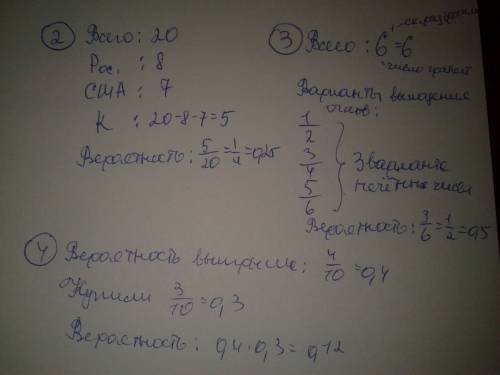 2 Всего: 20
Рос. : 8
США : 7
К : 20-8-7=5
Вероятность: 5/20=1/4=0,25
3 Всего : 6=6
число граней
Варианты выпадения
очков:
1
2
3
4
5
6
3 варианта
нечётных чисел
Вероятность: 3/6=1/2=0,5
4 Вероятность выигрыша: 4/10=0,4
Купили 3/10=0,3
Вероятность: 0,4·0,3=0,12